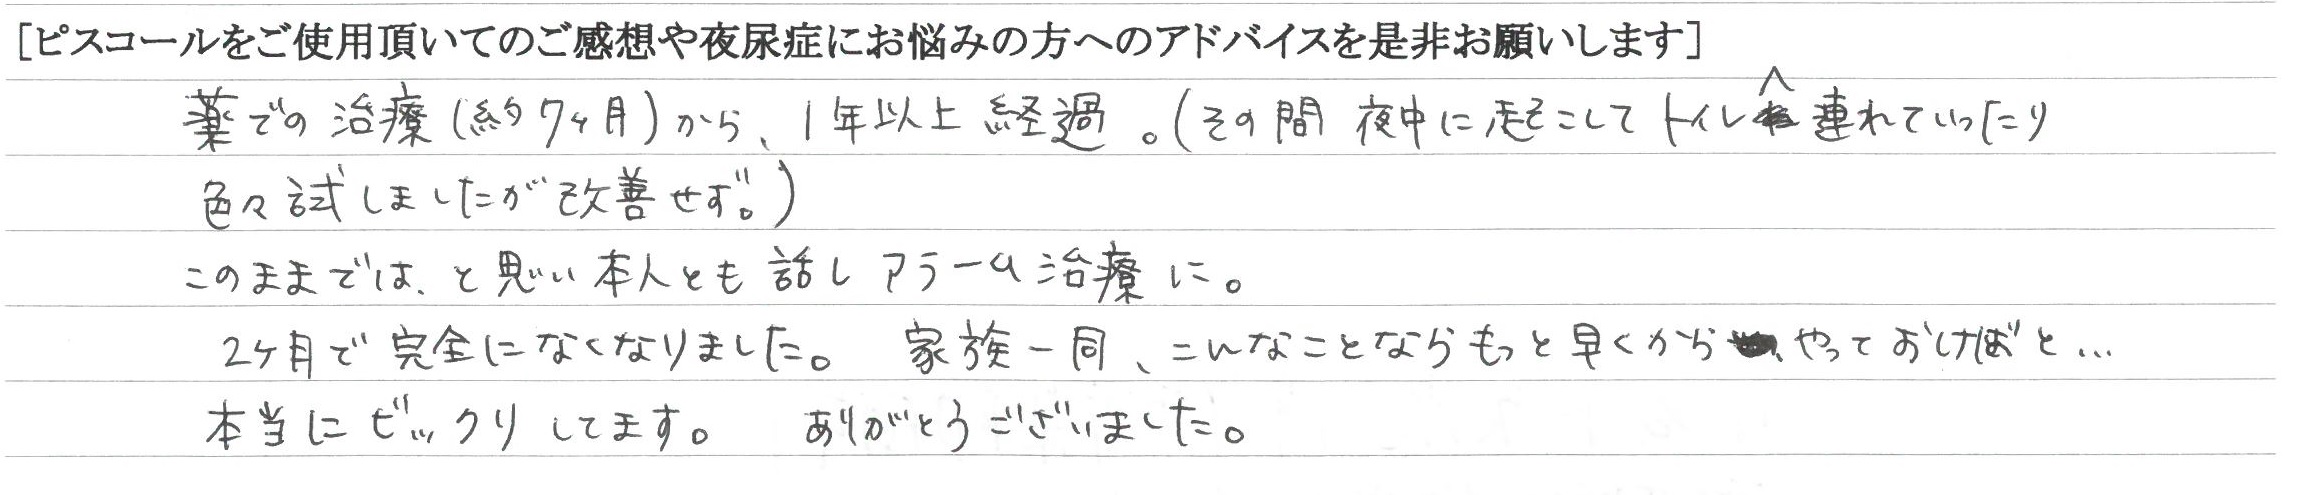 [ピスコールをご使用頂いてのご感想や夜尿症にお悩みの方へのアドバイスを是非お願いします]
薬での治療(約7ヶ月)から、1年以上経過。(その間 夜中に起こしてトイレへ連れていったり
色々試しましたが改善せず。)
このままでは、と思い本人とも話しアラーム治療に。
2ヶ月で完全になくなりました。 家族一同、こんなことならもっと早くから、やっておけばと...
本当にビックリしてます。 ありがとうございました。